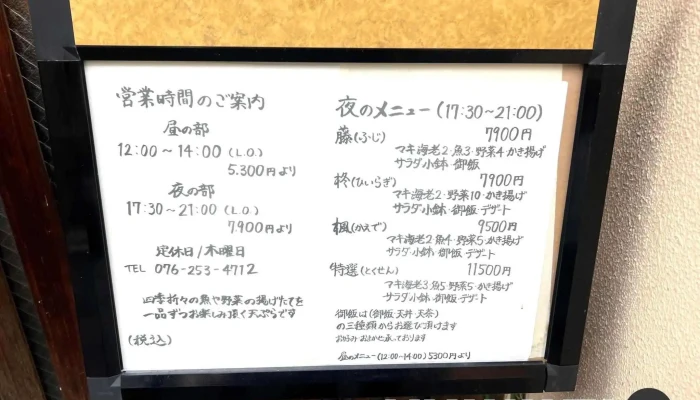 営業時間のご案内
昼の部
12:00～14:00 (L.O.)
5.300円より
夜の部
17:30～21:00 (L.O.)
7.900円より
定休日/木曜日
TEL 076-253-4712
四季折々の魚や野菜の揚げたてを
一品ずつお楽しみ頂く天ぷらです
(税込)
夜のメニュー(17:30~21:00)
藤(ふじ) 7900円
マキ海老2・魚3・野菜4・かき揚げ
サラダ小鉢・御飯
柊(ひいらぎ) 7900円
マキ海老2・野菜10・かき揚げ
サラダ小鉢・御飯・デザート
楓(かえで) 9500円
マキ海老2・魚4・野菜5・かき揚げ
サラダ小鉢・御飯・デザート
特選(とくせん) 11500円
マキ海老3・魚5・野菜5・かき揚げ
サラダ小鉢・御飯・デザート
御飯は(御飯・天丼・天茶)
の三種類からお選び頂けます
お好み・おまかせ承っております
昼のメニュー(12:00-14:00)5300円より